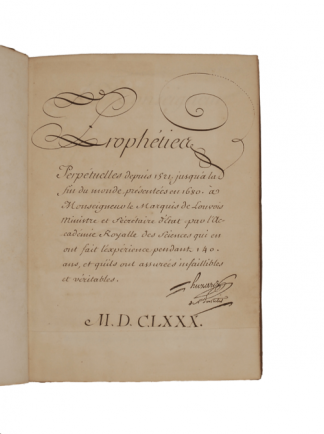 Prophéties
Perpetuelles depuis 1521 jusqu'a la
fin du monde présentées en 1680 à
Monseigneur le Marquis de Louvois
Ministre et Sécrétaire d'Etat par l'Ac
cademie Royalle des Sciences qui en
ont fait l'expérience pendant 140
ans, et qu'ils ont assurées infaillibles
et véritables.
M.D.CLXXX.